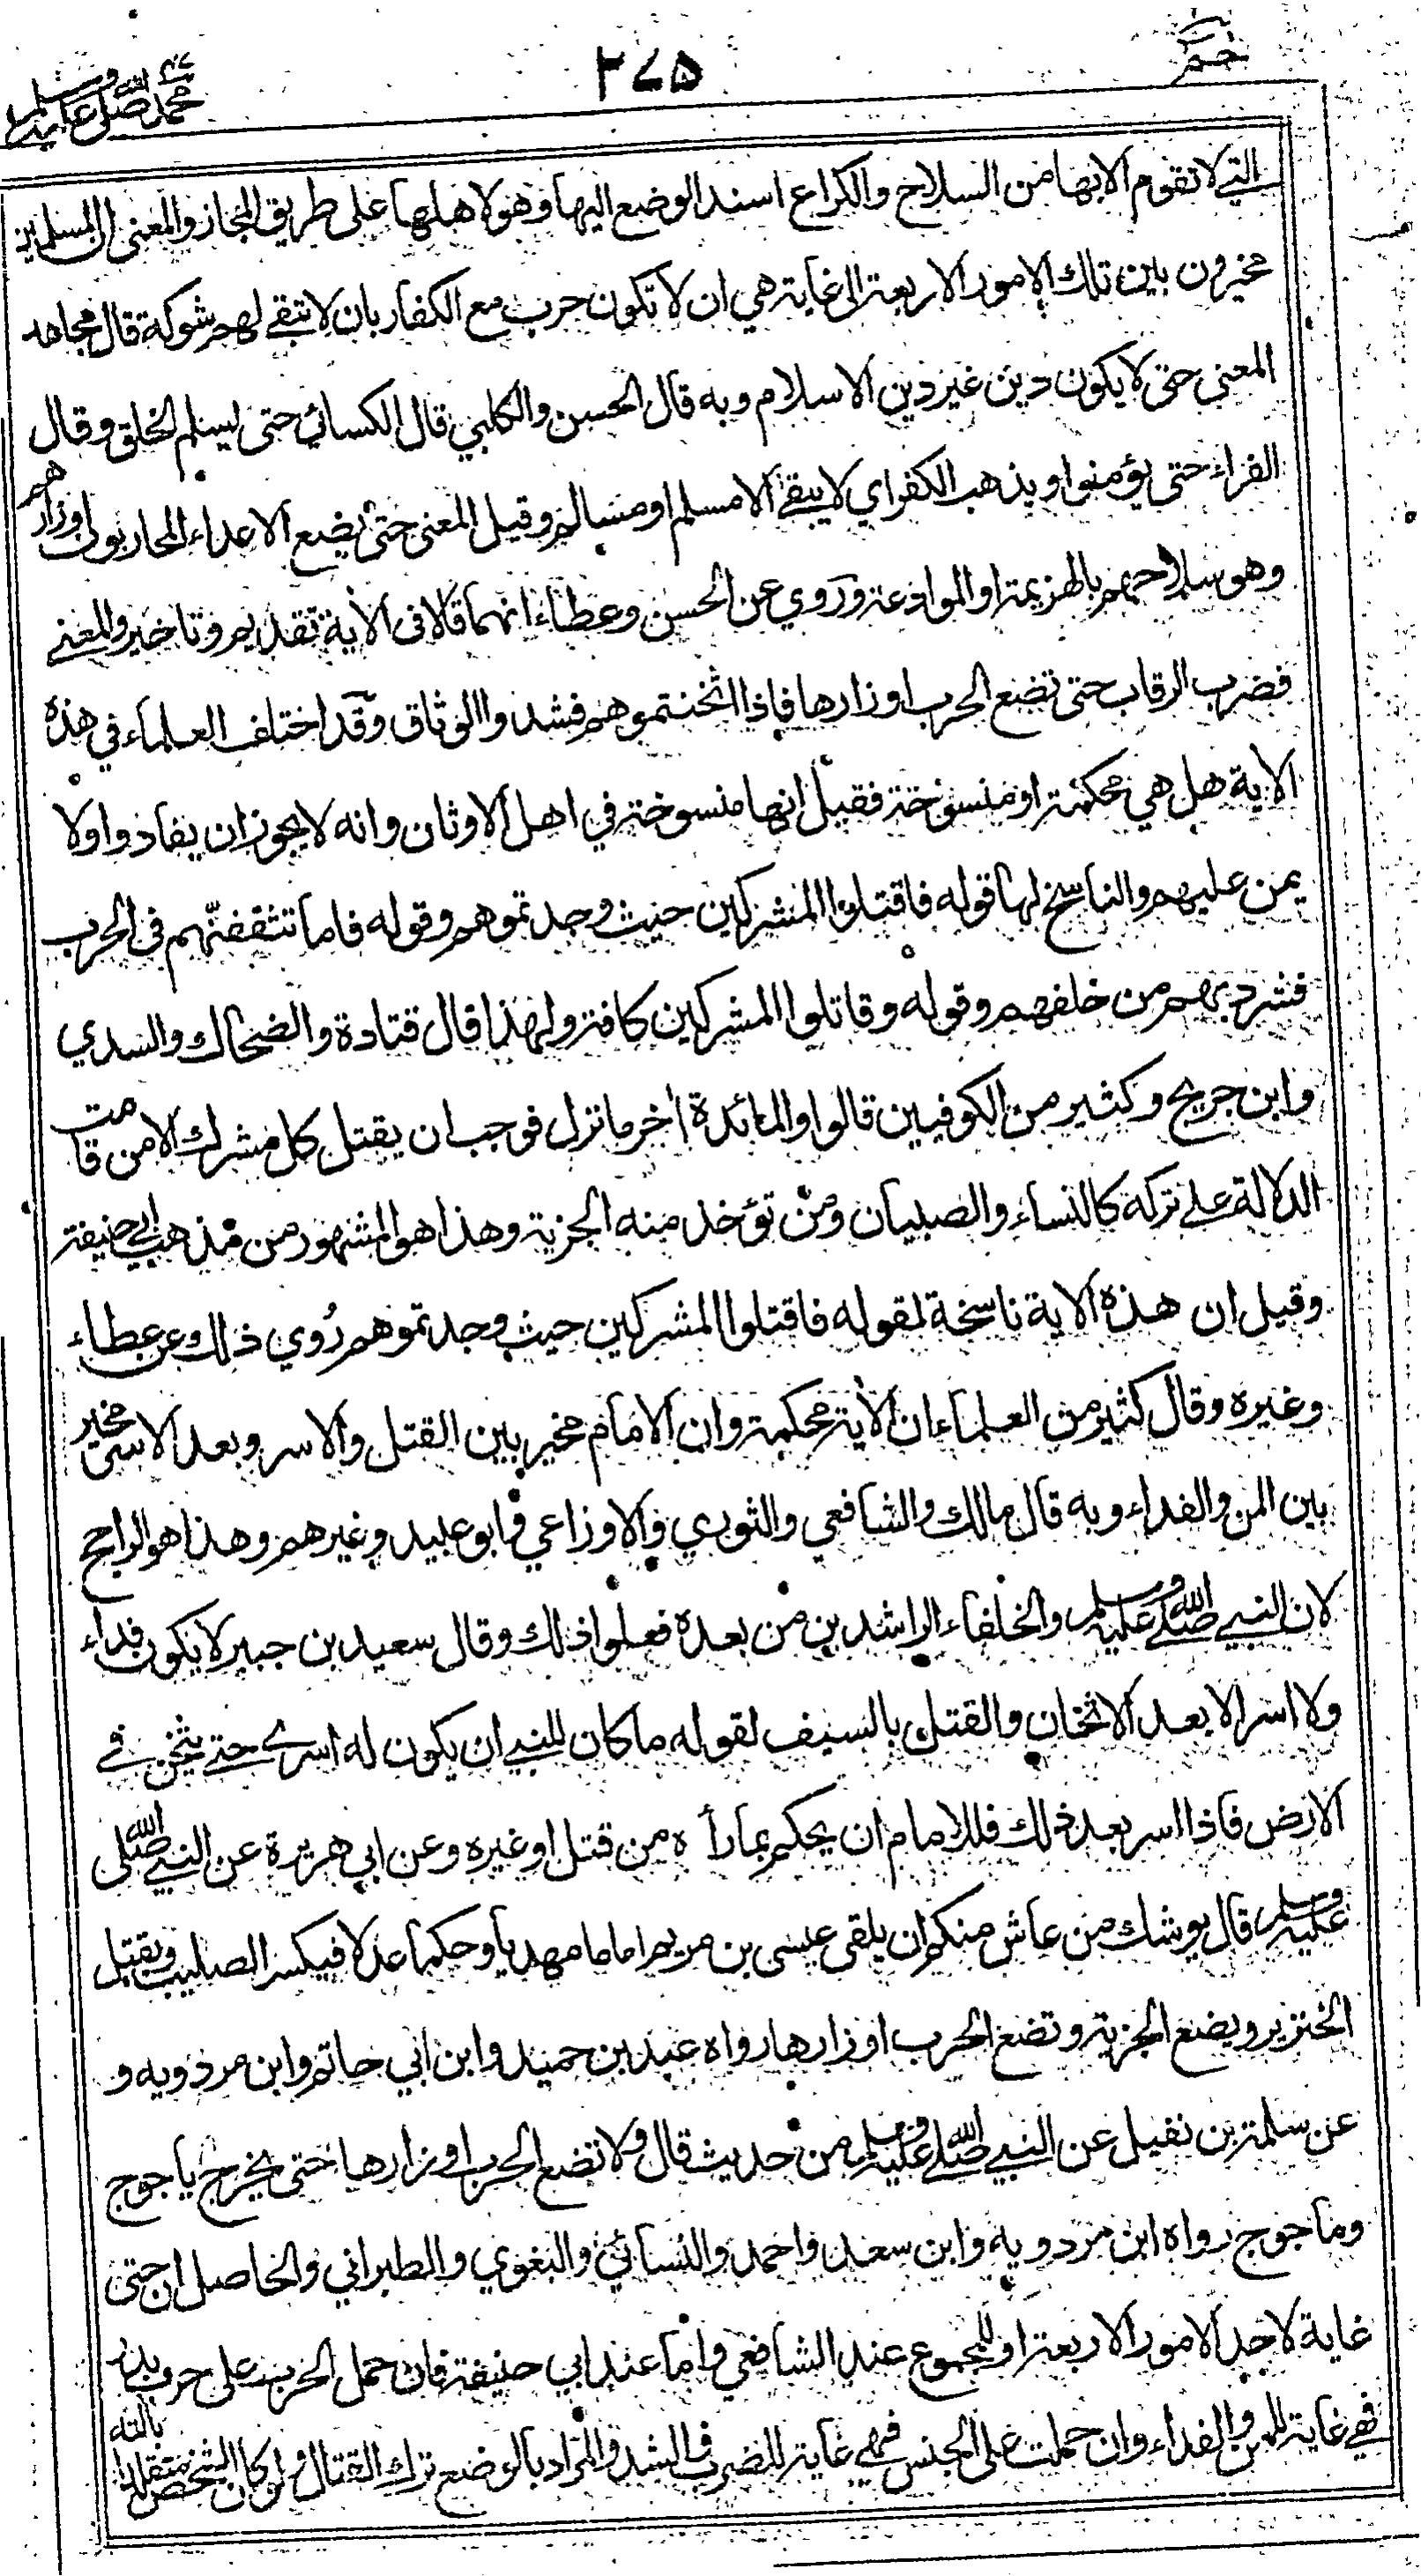 حم
٢٧٥
محمد صلى الله عليه وسلم
التي لا تقوم الا بها من السلاح والكراع اسند الوضع اليها وهو لاهلها على طريق المجاز والمعنى ان المسلمين
مخيرون بين تلك الامور الاربعة الى غاية هي ان لا تكون حرب مع الكفار بان لا تبقى لهم شوكة قال مجاهد
المعنى حتى لا يكون دين غير دين الاسلام وبه قال الحسن والكلبي قال الكسائي حتى يسلم الخلق وقال
الفراء حتى يؤمنوا ويذهب الكفر اي لا يبقى الا مسلم او مسالم وقيل المعنى حتى يضع الاعداء المحاربون اوزارهم
وهو سلاحهم بالهزيمة او الموادعة وروي عن الحسن وعطاء انهما قالا في الاية تقديم وتاخير والمعنى
فضرب الرقاب حتى تضع الحرب اوزارها فاذا اثخنتموهم فشدوا الوثاق وقد اختلف العلماء في هذه
الاية هل هي محكمة او منسوخة فقيل انها منسوخة في اهل الاوثان وانه لا يجوز ان يفادوا ولا
يمن عليهم والناسخ لها قوله فاقتلوا المشركين حيث وجدتموهم وقوله فاما تثقفنهم في الحرب
فشرد بهم من خلفهم وقوله وقاتلوا المشركين كافة ولهذا قال قتادة والضحاك والسدي
وابن جريج وكثير من الكوفيين قالوا والمائدة اخر ما نزل فوجب ان يقتل كل مشرك الا من قامت
الدلالة على تركه كالنساء والصبيان ومن تؤخذ منه الجزية وهذا هو المشهور من مذهب ابي حنيفة
وقيل ان هذه الاية ناسخة لقوله فاقتلوا المشركين حيث وجدتموهم رُوي ذلك عن عطاء
وغيره وقال كثير من العلماء ان الاية محكمة وان الامام مخير بين القتل والاسر وبعد الاسر مخير
بين المن والفداء وبه قال مالك والشافعي والثوري والاوزاعي وابو عبيد وغيرهم وهذا هو الراجح
لان النبي صلى الله عليه وسلم والخلفاء الراشدين من بعده فعلوا ذلك وقال سعيد بن جبير لا يكون فداء
ولا اسر الا بعد الاثخان والقتل بالسيف لقوله ما كان للنبي ان يكون له اسرى حتى يثخن في
الارض فاذا اسر بعد ذلك فللامام ان يحكم بما رأه من قتل او غيره وعن ابي هريرة عن النبي صلى الله
عليه وسلم قال يوشك من عاش منكم ان يلقى عيسى بن مريم اماما مهديا وحكما عدلا فيكسر الصليب ويقتل
الخنزير ويضع الجزية وتضع الحرب اوزارها رواه عبد بن حميد وابن ابي حاتم وابن مردويه و
عن سلمة بن نفيل عن النبي صلى الله عليه وسلم من حديث قال ولا تضع الحرب اوزارها حتى يخرج ياجوج
وماجوج رواه ابن مردويه وابن سعد واحمد والنسائي والبغوي والطبراني والحاصل ان حتى
غاية لاحد الامور الاربعة او للمجموع عند الشافعي واما عند ابي حنيفة فان حمل الحرب على حرب بدر
فهي غاية للمن والفداء وان حملت على الجنس فهي غاية للضرب والشد والمراد بالوضع ترك القتال ولو كان الشخص متقلدا بالته